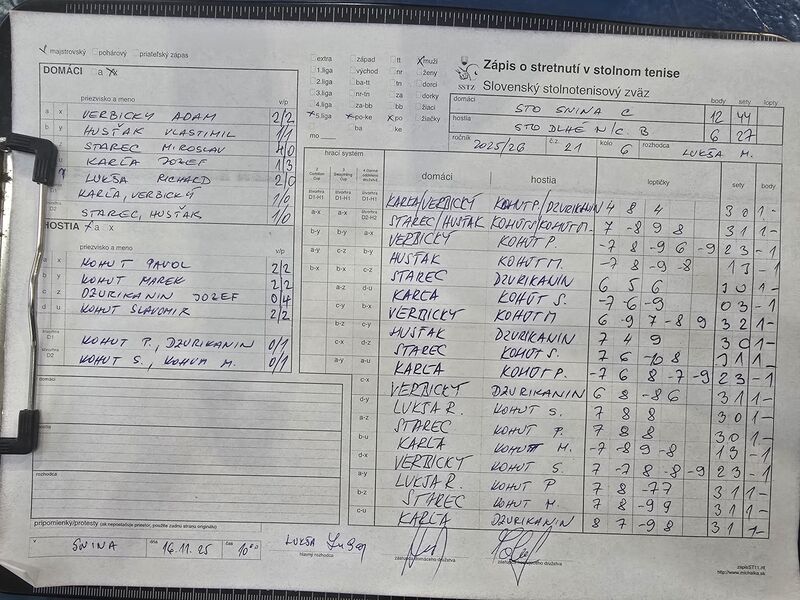 majstrovský pohárový priateľský zápas
DOMÁCI a x
priezvisko a meno v/p
a x VERBICKÝ ADAM 2/2
b y HUSŤAK VLASTIMIL 1/1
STAREC MIROSLAV 4/0
KARĽA JOZEF 1/3
LUKŠA RICHARD 2/0
D1 KARĽA, VERBICKÝ 1/0
D2 STAREC, HUSŤAK 1/0
HOSTIA a x
priezvisko a meno v/p
a x KOHUT PAVOL 2/2
b y KOHUT MAREK 2/2
c z DZURIKANIN JOZEF 0/4
d u KOHUT SLAVOMIR 2/2
štvorhra D1 KOHUT P., DZURIKANIN 0/1
štvorhra D2 KOHUT S., KOHUT M. 0/1
domáci
hostia
rozhodca
pripomienky/protesty (ak nepostačuje priestor, použite zadnú stranu originálu)
v SNINA dňa 16.11.25 čas 10⁰⁰ LUKŠA
hlavný rozhodca
zástupca domáceho družstva
zástupca hosťujúceho družstva
extra západ tt muži
1.liga východ nr ženy
2.liga ba-tt tn dorci
3.liga nr-tn za dorky
4.liga za-bb bb žiaci
5.liga po-ke po žiačky
mo ba ke
SSTZ
Zápis o stretnutí v stolnom tenise
Slovenský stolnotenisový zväz
domáci STO SNINA C body 12 sety 44 lopty
hostia STO DLHÉ N/C. B 6 27
ročník 2025/26 č.z. 21 kolo 6 rozhodca LUKŠA M.
hrací systém domáci hostia loptičky sety body
D1-H1 KARĽA/VERBICKÝ KOHUT P./DZURIKANIN 4 8 4 3 0 1 -
STAREC/HUSŤAK KOHUT S/KOHUT M. 7 -8 9 8 3 1 1 -
VERBICKÝ KOHUT P. -7 8 -9 6 -9 2 3 - 1
HUSŤAK KOHUT M. -7 8 -9 -8 1 3 - 1
STAREC DZURIKANIN 6 5 6 3 0 1 -
KARĽA KOHUT S. -7 -6 -9 0 3 - 1
VERBICKÝ KOHUT M 6 -9 7 -8 9 3 2 1 -
HUSŤAK DZURIKANIN 7 4 9 3 0 1 -
STAREC KOHUT S. 7 6 -10 8 3 1 1 -
KARĽA KOHUT P. -7 6 8 -7 -9 2 3 - 1
VERBICKÝ DZURIKANIN 6 8 -8 6 3 1 1 -
LUKŠA R. KOHUT S. 7 8 8 3 0 1 -
STAREC KOHUT P. 7 8 8 3 0 1 -
KARĽA KOHUT M. -7 -8 9 -8 1 3 - 1
VERBICKÝ KOHUT S. 7 -7 8 -8 -9 2 3 - 1
LUKŠA R. KOHUT P 7 8 -7 7 3 1 1 -
STAREC KOHUT M 7 8 -9 9 3 1 1 -
KARĽA DZURIKANIN 8 7 -9 8 3 1 1 -
zapisST11.rtf
http://www.michalka.sk